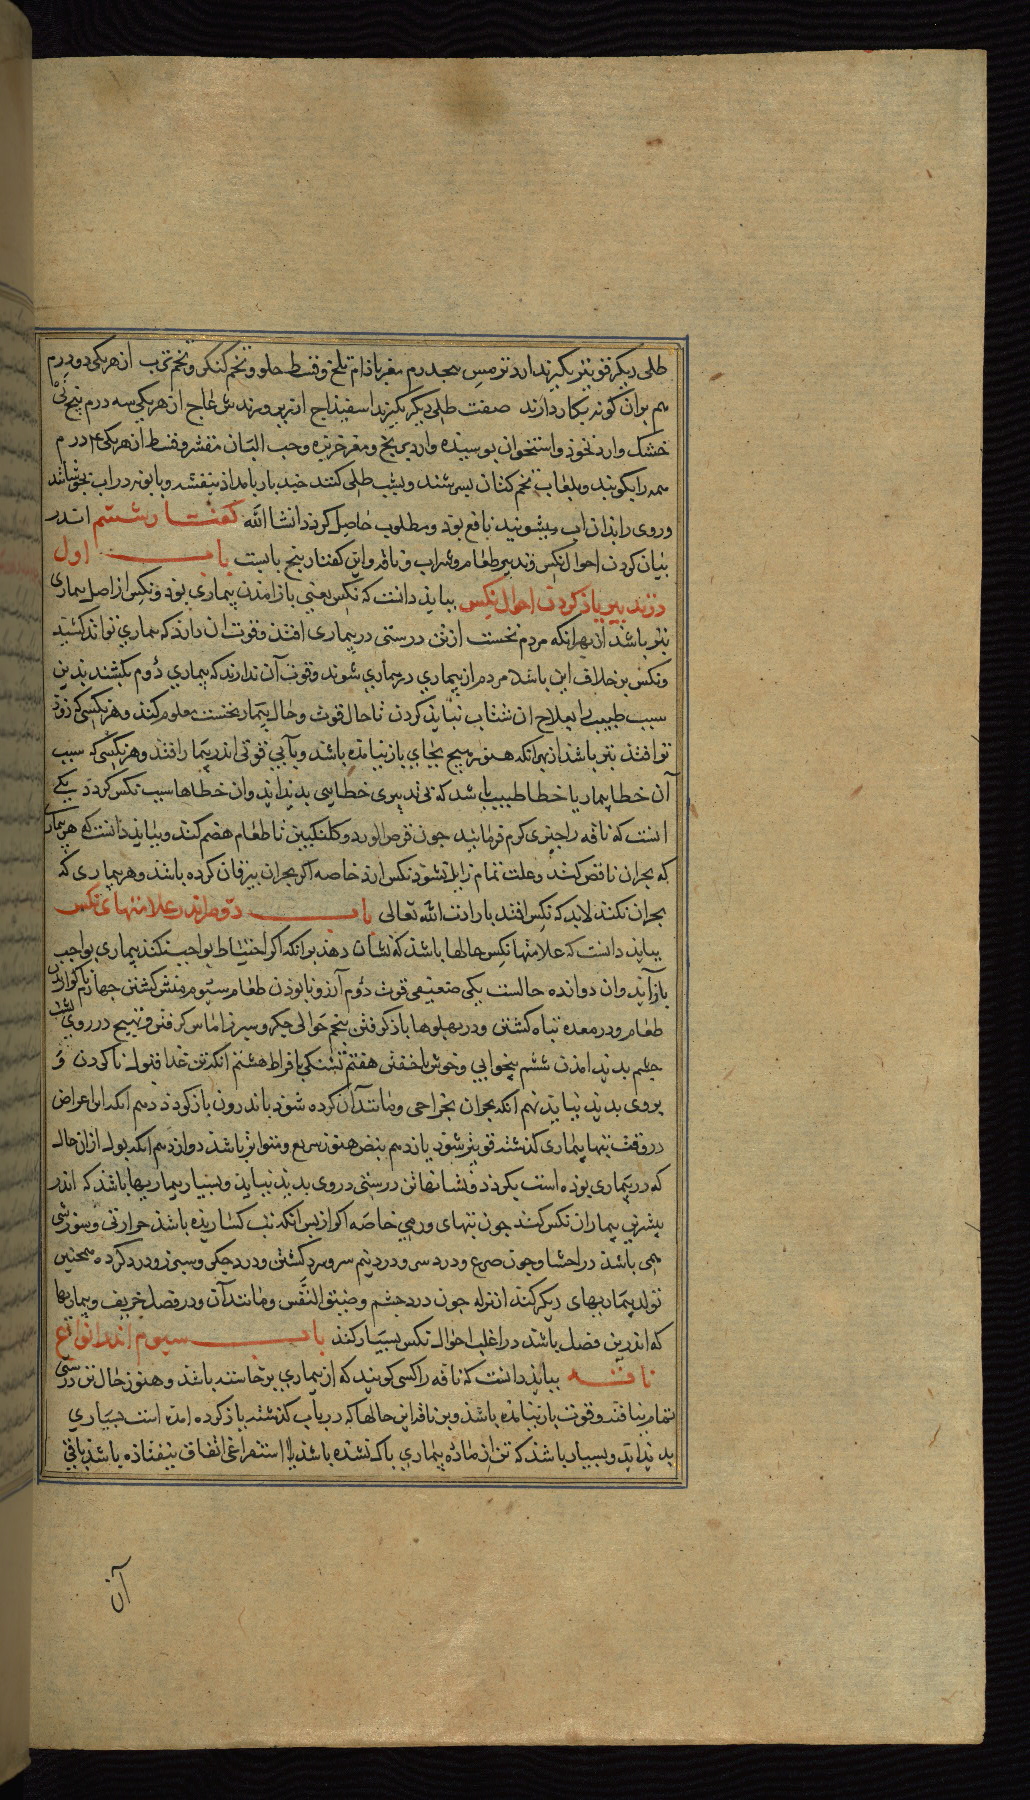 طلی دیگر قویتر بگیرند ارد ترمس هجدرم مغز باذام تلخ و قسط حلو و تخم کنگر و تخم ترب از هر یکی دو درم
هم بران کونه بکار دارند صفت طلی دیگر بگیرند اسفیذاج ارزیز و برنده عاج از هر یکی سه درم بیخ نی
خشک و ارد نخوذ و استخوان بوسیده و ارد برنج و مغز خربزه و حب البان مقشر و قسط از هر یکی ۴ درم
همه را بکوبند و بلعاب تخم کتان بسرشند و بشب طلی کنند جند بار بامداذ بنفشه و بابونه در اب بجوشانند
وروی را بذان اب بشویند نافع بوذ و مطلوب حاصل کردد انشا الله کفتار هشتم اندر
بیان کردن احوال نکس و تدبیر طعام و شراب و ناقه و این کفتار پنج بابست باب اول
در تدبیر یاذ کردن احوال نکس ببایذ دانست که نکس یعنی باز امدن بیماری بوذ و نکس از اصل بیماری
بتر باشذ از بهر انکه مردم نخست از تن درستی در بیماری افتذ و قوت ان دارذ که بیماری تواند کشید
و نکس بر خلاف این باشد مردم از بیماری در بیماری شوند و قوت آن ندارند که بیماری دوم بکشند بذین
سبب طبیب را بعلاج ان شتاب نبایذ کردن تا حال قوت و حال بیمار نخست معلوم کند و هر نکسی که زوذ
تر افتد بتر باشذ از بهر انکه هنوز هیچ بجای باز نیامده باشد و با بی قوتی اندر بیمار افتذ و هر نکسی که سبب
آن خطا بیمار یا خطا طبیب باشد که تدبیری خطایی بدید اید وان خطاها سبب نکس کردد یکی
انست که ناقه را چیزی کرم فرمایند جون قرص الورد و کلنکبین تا طعام هضم کند و ببایذ دانست که هر بیماری
که بحران ناقص کند و علت تمام زایل نشود نکس ارد خاصه اکر بحران بیرقان کرده باشذ و هر بیماری که
بحران نکند لابد که نکس افتد بارادت الله تعالی باب دوم اندر علامتهای نکس
ببایذ دانست که علامتها نکس حالها باشذ که نشان دهذ بر انکه اکر احتیاط بواجب نکنذ بیماری بواجب
باز آید وان دوازده حالست یکی ضعیفی قوت دوم آرزو نابوذن طعام سیوم منش کشتن چهارم ناکواریدن
طعام و در معده تباه کشتن و در بهلوها باذ کرفتن پنجم حوالی جکر و سپرز اماس کرفتن و تهیج در روی و پشت
چشم بدید امدن ششم بیخوابی و خوش ناخفتن هفتم تشنکی بافراط هشتم انکه تن غذا قبول ناکردن و
بروی بدید نیاید نهم انکه بحران بخراجی و مانند آن کرده شود باندرون باز کردذ دهم انکه این اعراض
در وقت تبها بیماری کذشته قویتر شوذ یازدهم نبض هنوز سریع و متواتر باشذ دوازدهم انکه بول از ان حال
که در بیماری بوده است بکردذ و نشانها تن درستی در وی بدید نیاید و بسیار بیماریها باشذ که اندر
بیشتری بیماران نکس کند جون تبهای ورمی خاصه اکر از بس انکه تب کساریده باشذ حرارتی و سوزشی
همی باشذ در احشا و جون صرع و درد سر و درد نیم سر و سرد کشتن و درد جکر و سپرز و درد کرده همچنین
تولد بیماریهای دیکر کند از نزله جون درد چشم و ضیق النفس و مانند آن و در فصل خریف و بیماریها
که اندرین فصل باشد در اغلب احوال نکس بسیار کند باب سیوم اندر انواع
ناقه ببایذ دانست که ناقه را کسی کویند که از بیماری برخاسته باشذ و هنوز حال تن درستی
تمام نیافته و قوت باز نیامده باشذ و برین ناقه این حالها که در باب کذشته یاذ کرده امده است بسیاری
بدید اید و بسیار باشذ که تن از ماده بیماری باک نشده باشذ یا استفراغی اتفاق نیفتاذه باشذ باقی
آن